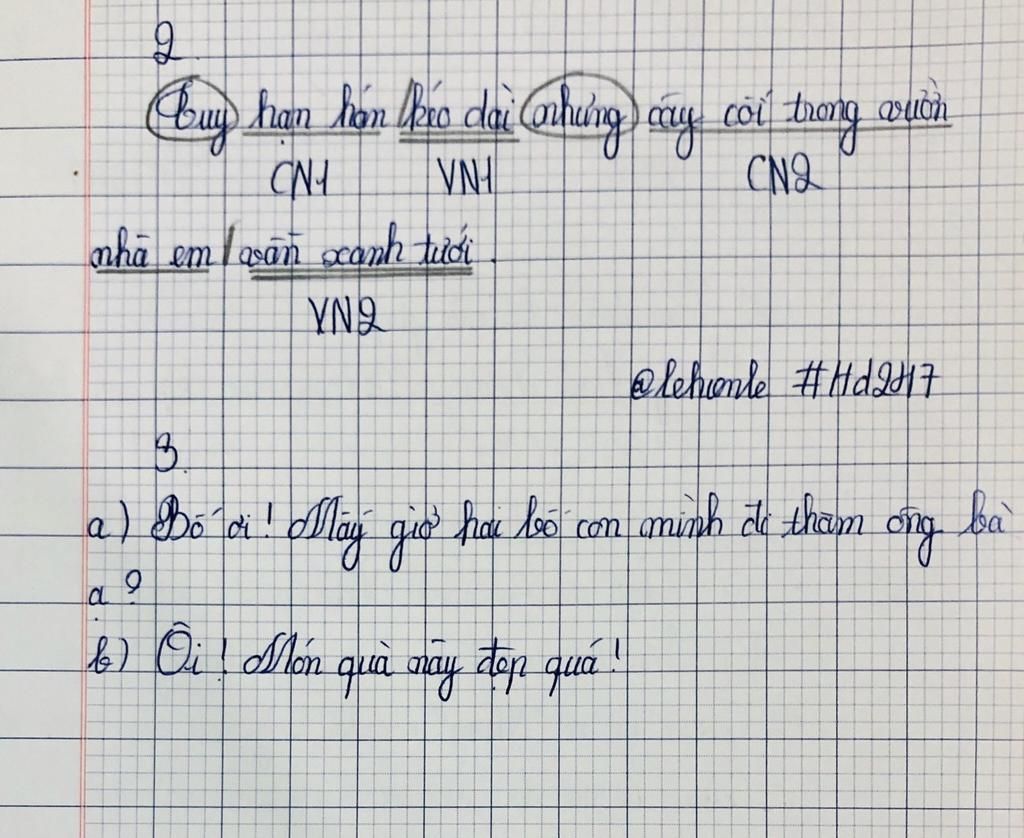 2.
Tuy hạn hán / kéo dài nhưng cây cối trong vườn
CN1 VN1 CN2
nhà em / vẫn xanh tươi.
VN2
@lehonle #Hd247
3.
a) Bố ơi! Mấy giờ hai bố con mình đi thăm ông bà
ạ?
b) Ôi! Món quà này đẹp quá!